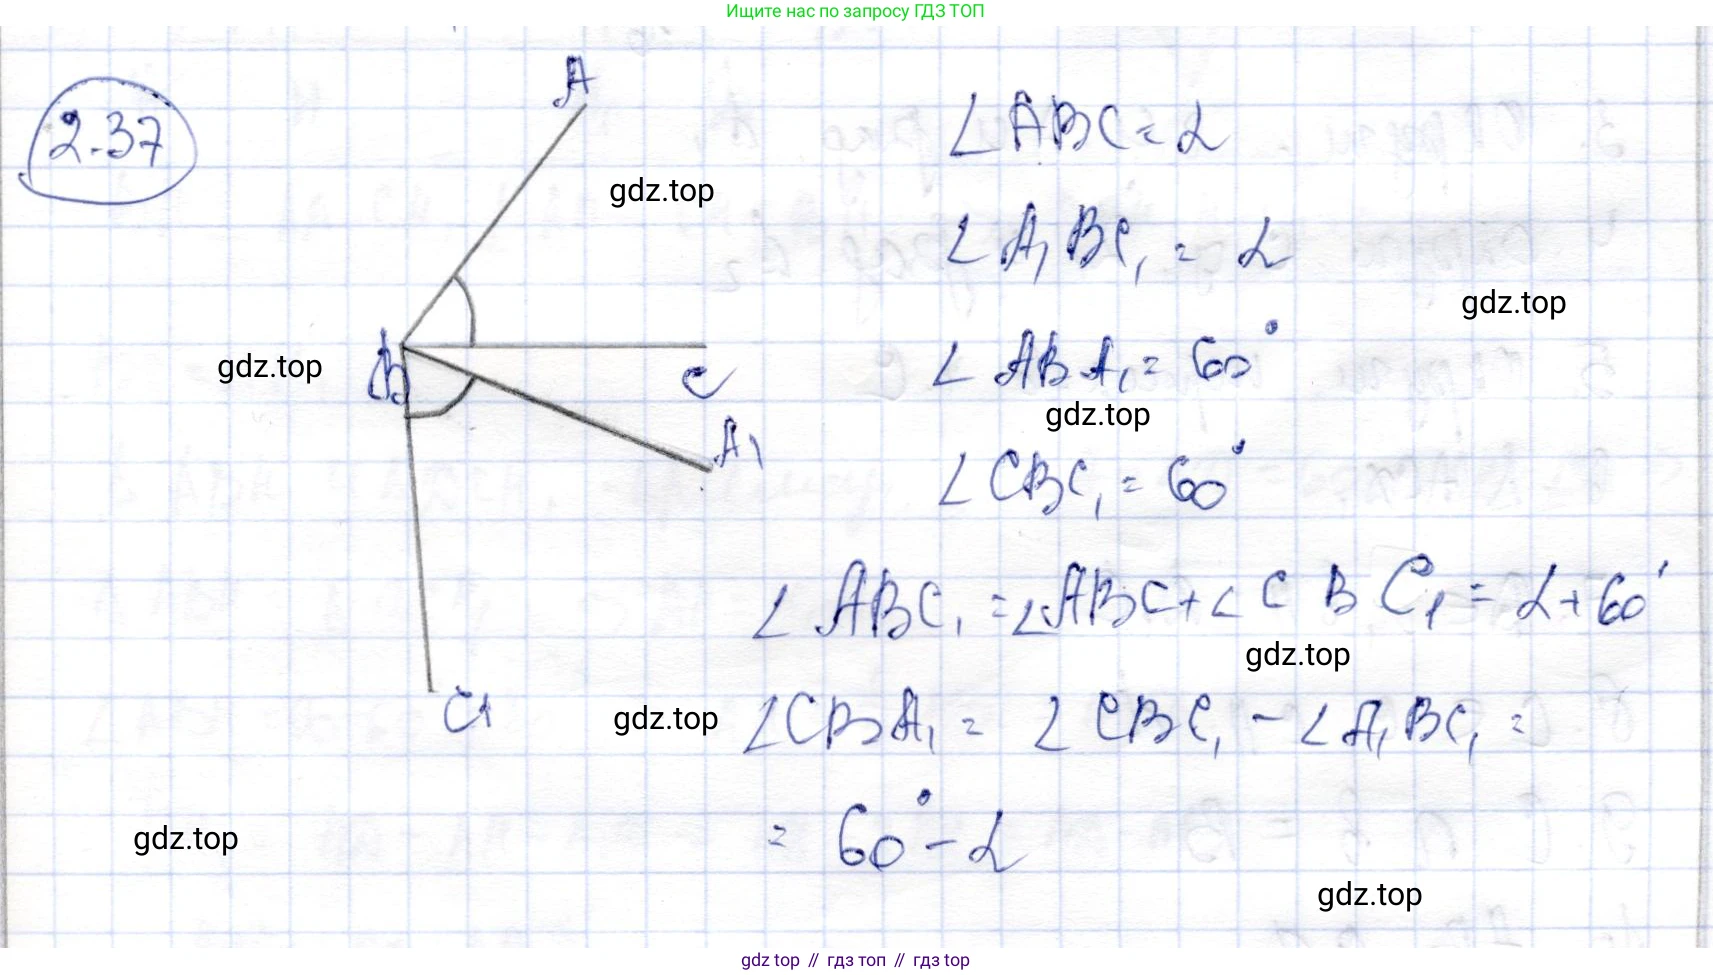 Ищите нас по запросу ГДЗ ТОП
2.37
A
∠ABC = α
gdz.top
∠A₁BC₁ = α
gdz.top
∠ABA₁ = 60°
B
gdz.top
C
gdz.top
A₁
∠CBC₁ = 60°
∠ABC₁ = ∠ABC + ∠CBC₁ = α + 60°
gdz.top
C₁
gdz.top
∠CBA₁ = ∠CBC₁ - ∠A₁BC₁ =
= 60° - α
gdz.top
gdz.top
gdz top // гдз топ // гдз top